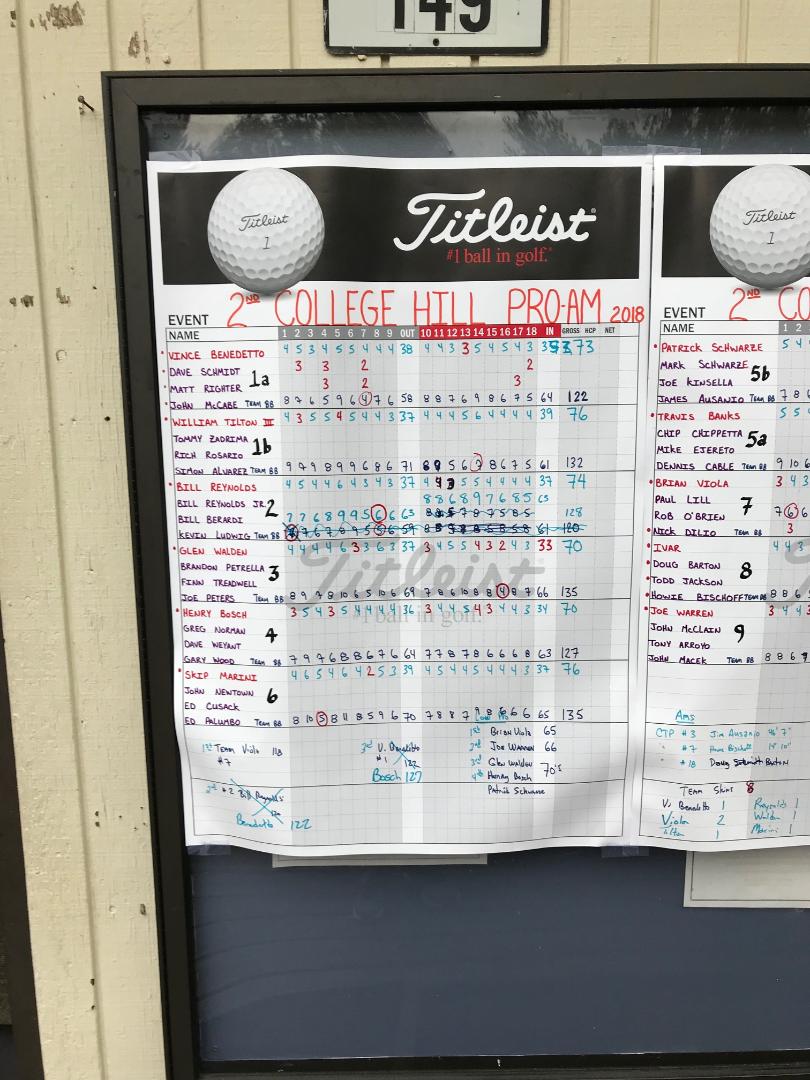 149
Titleist
1
Titleist
#1 ball in golf.
Titleist
1
EVENT 2ND COLLEGE HILL PRO-AM 2018
NAME 1 2 3 4 5 6 7 8 9 OUT 10 11 12 13 14 15 16 17 18 IN GROSS HCP NET
VINCE BENEDETTO 4 5 3 4 5 5 4 4 4 38 4 4 3 3 5 4 5 4 3 73
DAVE SCHMIDT 3 3 2 2
MATT RIGHTER 1a 3 2 3
JOHN McCABE TEAM BB 8 7 6 5 9 6 4 7 6 58 8 8 7 6 9 8 6 7 5 64 122
WILLIAM TILTON III 4 3 5 5 4 5 4 4 3 37 4 4 4 5 6 4 4 4 4 39 76
TOMMY ZADRIMA
RICH ROSARIO 1b
SIMON ALVAREZ TEAM BB 9 7 9 8 9 9 6 8 6 71 5 6 7 8 6 7 5 61 132
BILL REYNOLDS 4 5 4 4 6 4 3 4 3 37 4 3 5 5 4 4 4 4 37 74
BILL REYNOLDS JR. 2 8 8 6 8 9 7 6 8 5 65
BILL BERARDI 7 7 6 8 9 9 5 6 6 63 128
KEVIN LUDWIG TEAM BB 59 61 120
GLEN WALDEN 4 4 4 4 6 3 3 6 3 37 3 4 5 5 4 3 2 4 3 33 70
BRANDON PETRELLA 3
FINN TREADWELL
JOE PETERS TEAM BB 8 9 7 8 10 6 5 10 6 69 7 8 6 10 8 8 4 8 7 66 135
HENRY BOSCH 3 5 4 3 5 4 4 4 4 36 3 4 4 5 4 3 4 4 3 34 70
GREG NORMAN 4
DAVE WEYANT
GARY WOOD TEAM BB 7 7 9 6 8 8 6 7 6 64 7 7 8 7 8 6 6 6 8 63 127
SKIP MARINI 4 6 5 4 6 4 2 5 3 39 4 5 4 4 5 4 4 4 3 37 76
JOHN NEWTOWN 6
ED CUSACK
ED PALUMBO TEAM BB 8 10 5 8 11 8 5 9 6 70 7 8 8 7 9 8 6 6 6 65 135
1st Team Viola 118
#7
2nd #2 Bill Reynolds
Benedetto 122
3rd V. Benedetto
#1 122
Bosch 127
Low Pro
1st Brian Viola 65
2nd Joe Warren 66
3rd Glen Walden 70's
4th Henry Bosch
Patrick Schwarze
EVENT 2ND CO
NAME 1 2
PATRICK SCHWARZE 5 4
MARK SCHWARZE 5b
JOE KINSELLA
JAMES AUSANIO TEAM BB 7 8
TRAVIS BANKS 5 5
CHIP CHIPPETTA 5a
MIKE EJERETO
DENNIS CABLE TEAM BB 9 10
BRIAN VIOLA 3 4 3
PAUL LILL 7
ROB O'BRIEN 7 6
NICK DILIO TEAM BB 3
IVAR 4 4
DOUG BARTON 8
TODD JACKSON
HOWIE BISCHOFF TEAM BB 8 8 6
JOE WARREN 3 4 4
JOHN McCLAIN 9
TONY ARROYO
JOHN MACEK TEAM BB 8 8 6
Ams
CTP #3 Jim Ausanio
#7 Howie Bischoff
#18 Doug Barton
TEAM SKINS 8
V. Benedetto 1 Reynolds 1
Viola 2 Walden 1
Tilton 1 Marini 1